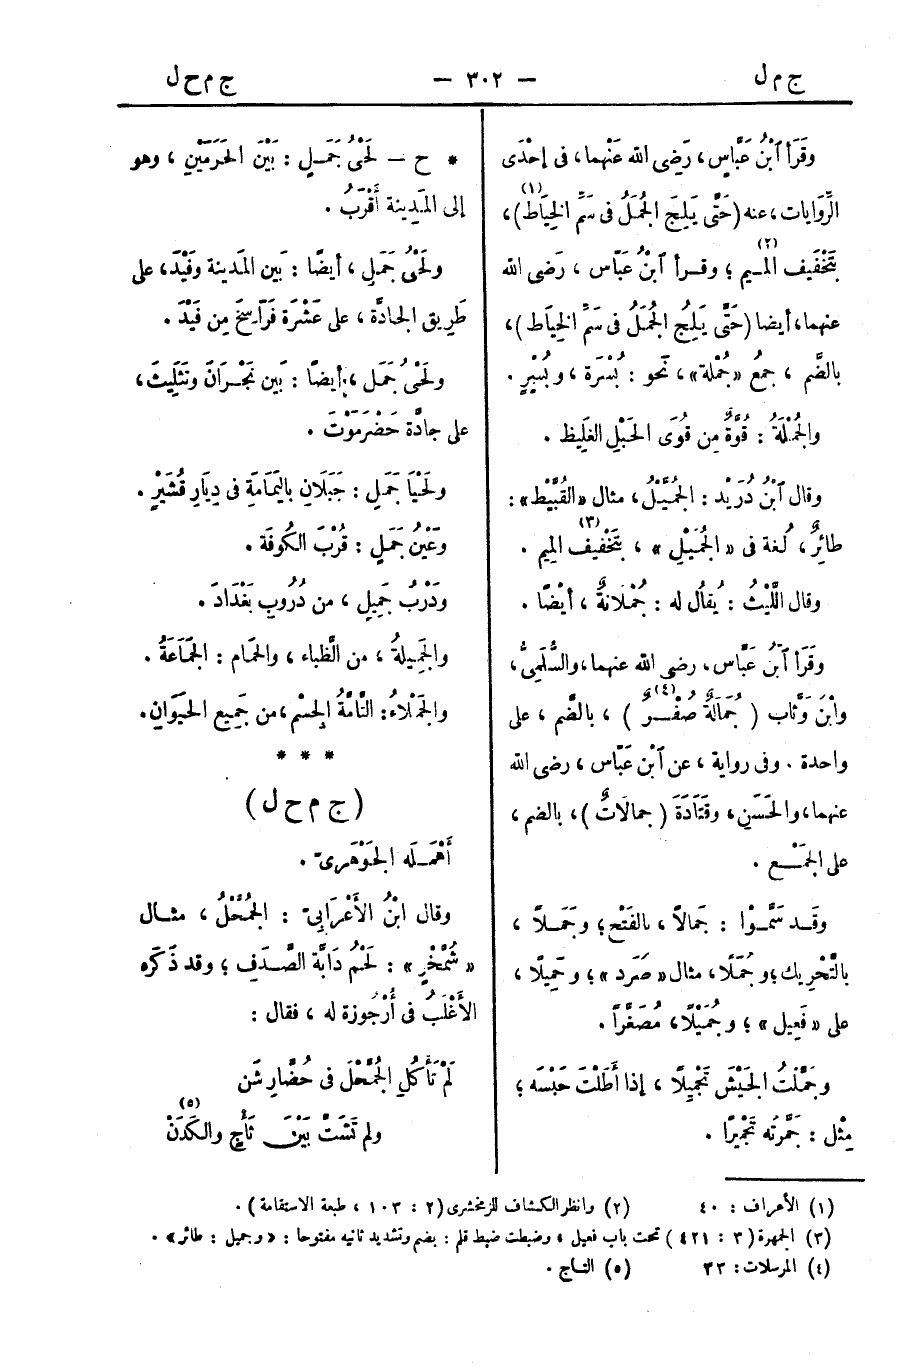 ج م ل
— ٣٠٢ —
ج م ح ل
وقَرَأ ٱبْنُ عَبَّاسٍ، رَضِى الله عَنْهما، فى إحْدَى
الرِّوَايات، عنه (حَتَّى يَلِجَ الجُمَلُ فى سَمِّ الخِيَاط)(١)،
بتَخْفيف المـيم(٢)؛ وقـرأ ٱبنُ عبّاس، رَضى الله
عنهما، أيضا (حَتَّى يَلِجَ الجُمُلُ فى سَمِّ الخِيَاط)،
بالضَّم، جمعُ «جُمْلة»، نَحو: بُسْرَة، وبُسُرٍ.
والجُمْلَةُ: قُوَّةٌ مِن قُوَى الحَبْلِ الغَلِيظ.
وقال ٱبْنُ دُرَيْد: الجُمَّيْلُ، مثال «القُبَّيْط»:
طائِرٌ، لُغة فى «الجُمَيْلِ»(٣)، بتَخْفيف المِيم.
وقال اللَّيْثُ: يُقالُ له: جُمْلَانةٌ، أيْضًا.
وقَرَأ ٱبْنُ عبَّاس، رضى الله عنهما، والسُّلَمِىُّ،
وابْنُ وَثَّاب (جُمَالَةٌ صُفْـرٌ)(٤)، بالضَّم، على
واحدة. وفى رواية، عن ٱبْن عَبّاس، رضى الله
عنهما، والحَسَنِ، وقَتَادَةَ (جمالَاتٌ)، بالضم،
على الجَمْـع.
وقَـد سَمَّـوْا: جَمالاً، بالفَتْح؛ وجَمَـلاً،
بالتَّحْرِيك؛ وجُمَلًا، مثال «صُرَد»؛ وجَمِيلًا،
على «فَعِيل»؛ وجُمَيْلًا، مُصَغَّراً.
وجَمَّلْتُ الجَيْشَ تَجْمِيلًا، إذا أَطَلْتَ حَبْسَه؛
مِثْل: جَمَّرْتُه تَجْمِيرًا.
* ح — لَحْىُ جَمَـلٍ: بَيْنَ الحَرَمَيْنِ، وهو
إلى المَدِينة أَقْرَبُ.
ولَحْىُ جَمَلٍ، أيضًا: بَين المَدينة وفَيْدَ، على
طَرِيق الجَادَّة، على عَشْرَة فَرَاسِخَ مِن فَيْدَ.
ولَحْىُ جَمَل، أيضًا: بَين نَجْرَانَ وتَثْلِيثَ،
على جادَّة حَضْرَمَوْتَ.
ولَحْيَا جَمَلٍ: جَبَلَانِ باليَمَامَةِ فى دِيَارِ قُشَيْرٍ.
وعَيْنُ جَمَلٍ: قُرْبَ الكُوفَة.
ودَرْبُ جَمِيلٍ، من دُرُوبِ بَغْدَادَ.
والجَمِيلةُ، من الظِّباء، والحَمام: الجَمَاعَةُ.
والجَمْلَاءُ: التَّامَّةُ الجِسْمِ، من جَمِيع الحَيَوَانِ.
* * *
(ج م ح ل)
أَهْمَـلَه الجَوْهَرىّ.
وقال ابنُ الأَعْرَابِىّ: الجُمَّحْلُ، مثـال
«شُمَّخْرٍ»: لَحْمُ دَابَّة الصَّـدَفِ؛ وقد ذَكَره
الأَغْلَبُ فى أُرْجُوزة له، فقال:
لَمْ تَأْكُلِ الجُمَّحْلَ فى حُضَّارِ شَن
ولم تَشَتَّ بَيْنَ ثَأْجٍ والكَدَنْ(٥)
(١) الأعراف: ٤٠
(٢) وانظر الكشاف للزمخشرى (٢: ١٠٣، طبعة الاستقامة).
(٣) الجمهرة (٣: ٤٢١) تحت باب فعيل، وضبطت ضبط قلم: بضم وتشديد ثانيه مفتوحا: «وجميل: طائر».
(٤) المرسلات: ٣٣
(٥) التاج.